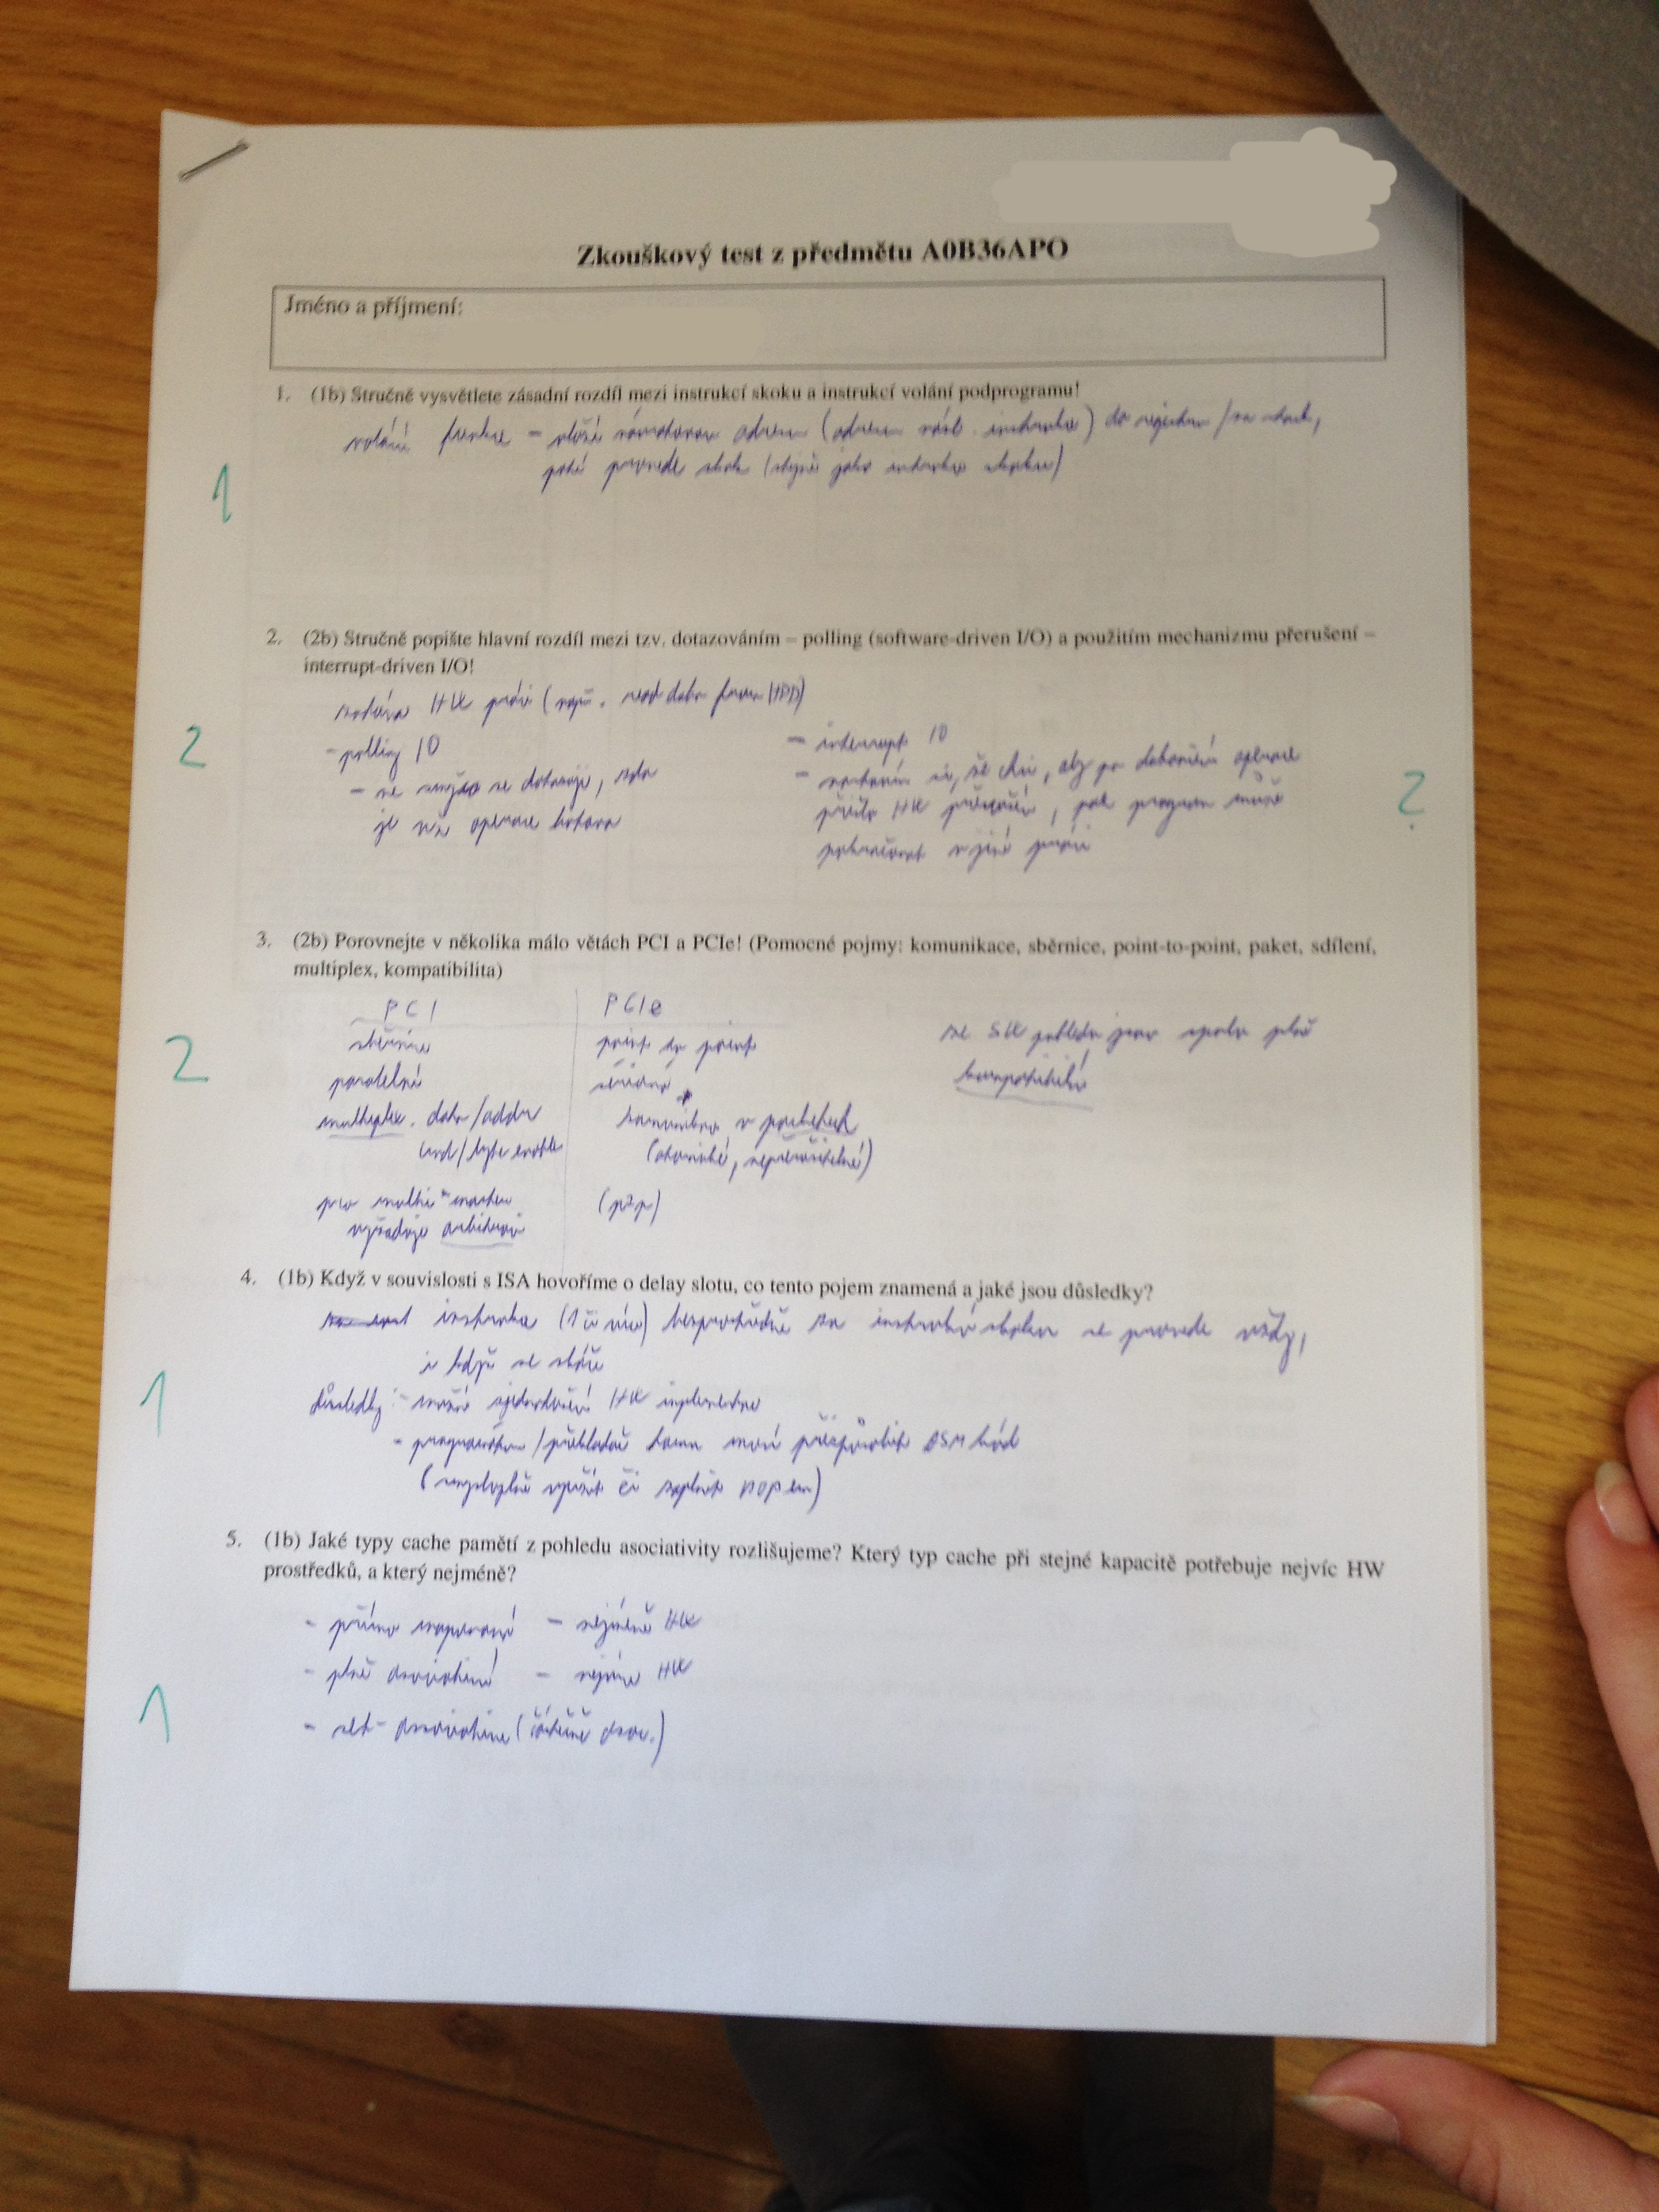 Zkouškový test z předmětu A0B36APO
Jméno a příjmení:
1. (1b) Stručně vysvětlete zásadní rozdíl mezi instrukcí skoku a instrukcí volání podprogramu!
volání funkce – vloží návratovou adresu (adresu násl. instrukce) do registru / na stack,
poté provede skok (stejně jako instrukce skoku)
1
2. (2b) Stručně popište hlavní rozdíl mezi tzv. dotazováním – polling (software-driven I/O) a použitím mechanizmu přerušení –
interrupt-driven I/O!
HW práci (např. read data from HDD)
- polling IO
- ve smyčce se dotazuje, zda
je už operace hotova
- interrupt IO
- si, že chci, aby po dokončení operace
přišlo HW přerušení, pak program může
pokračovat v jiné práci
2
2
3. (2b) Porovnejte v několika málo větách PCI a PCIe! (Pomocné pojmy: komunikace, sběrnice, point-to-point, paket, sdílení,
multiplex, kompatibilita)
PCI
sběrnice
paralelní
multiplex. data/addr
cmd/byte enable
pro multi-master
vyžaduje arbitraci
PCIe
point to point
sériová
komunikace v paketech
(atomické, nepřerušitelné)
(p2p)
ze SW pohledu jsou spolu plně
kompatibilní
2
4. (1b) Když v souvislosti s ISA hovoříme o delay slotu, co tento pojem znamená a jaké jsou důsledky?
instrukce (1 či více) bezprostředně za instrukcí skoku se provede vždy,
i když se skáče
důsledky: - možné zjednodušení HW implementace
- programátor / překladač tomu musí přizpůsobit ASM kód
(smysluplně využít či zaplnit NOPem)
1
5. (1b) Jaké typy cache pamětí z pohledu asociativity rozlišujeme? Který typ cache při stejné kapacitě potřebuje nejvíc HW
prostředků, a který nejméně?
- přímo mapovaná – nejméně HW
- plně asociativní – nejvíce HW
- set-asociative (částečně asoc.)
1